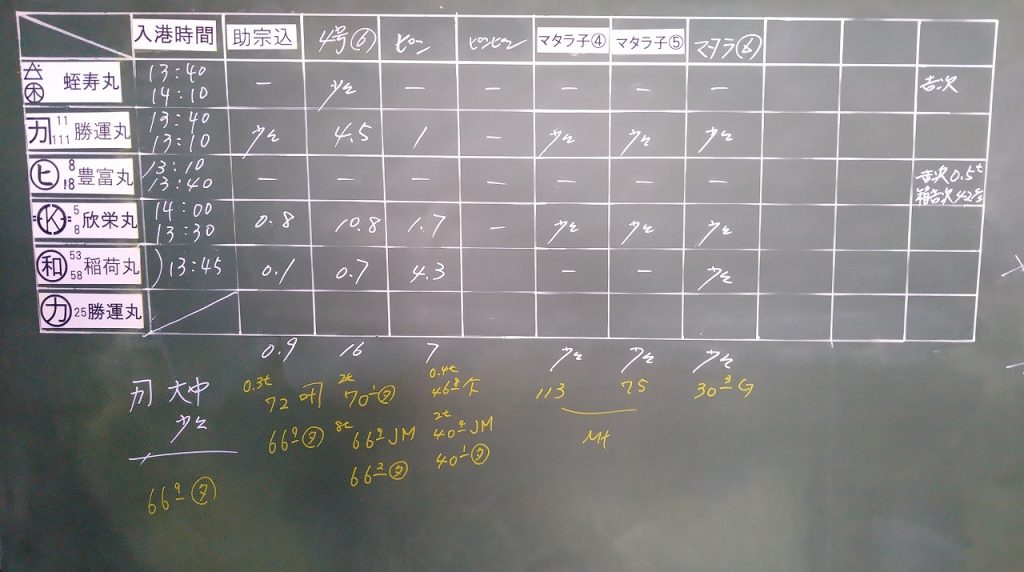 入港時間 助宗込 4号⑥ ピン ピンピン マタラ子④ マタラ子⑤ マタラ⑥
㊍ 蛭寿丸 13:40 14:10 ー 少々 ー ー ー ー ー
刀 11 111 勝運丸 13:40 13:10 少々 4.5 1 ー 少々 少々 少々
ヒ 8 18 豊富丸 13:10 13:40 ー ー ー ー ー ー ー 0.5t
K 5 8 欣栄丸 14:00 13:30 0.8 10.8 1.7 ー 少々 少々 少々
和 53 58 稲荷丸 13:45 0.1 0.7 4.3 ー ー 少々
力 25 勝運丸
0.9 16 7 少々 少々 少々
大中
少々
66 9 ㋟
0.3t
72
66 9 ㋟
2t
70 1 ㋟
8t
66 9 JM
66 2 ㋟
0.4t
46 8
2t
40 9 JM
40 1 ㋟
113 75
30 3 G